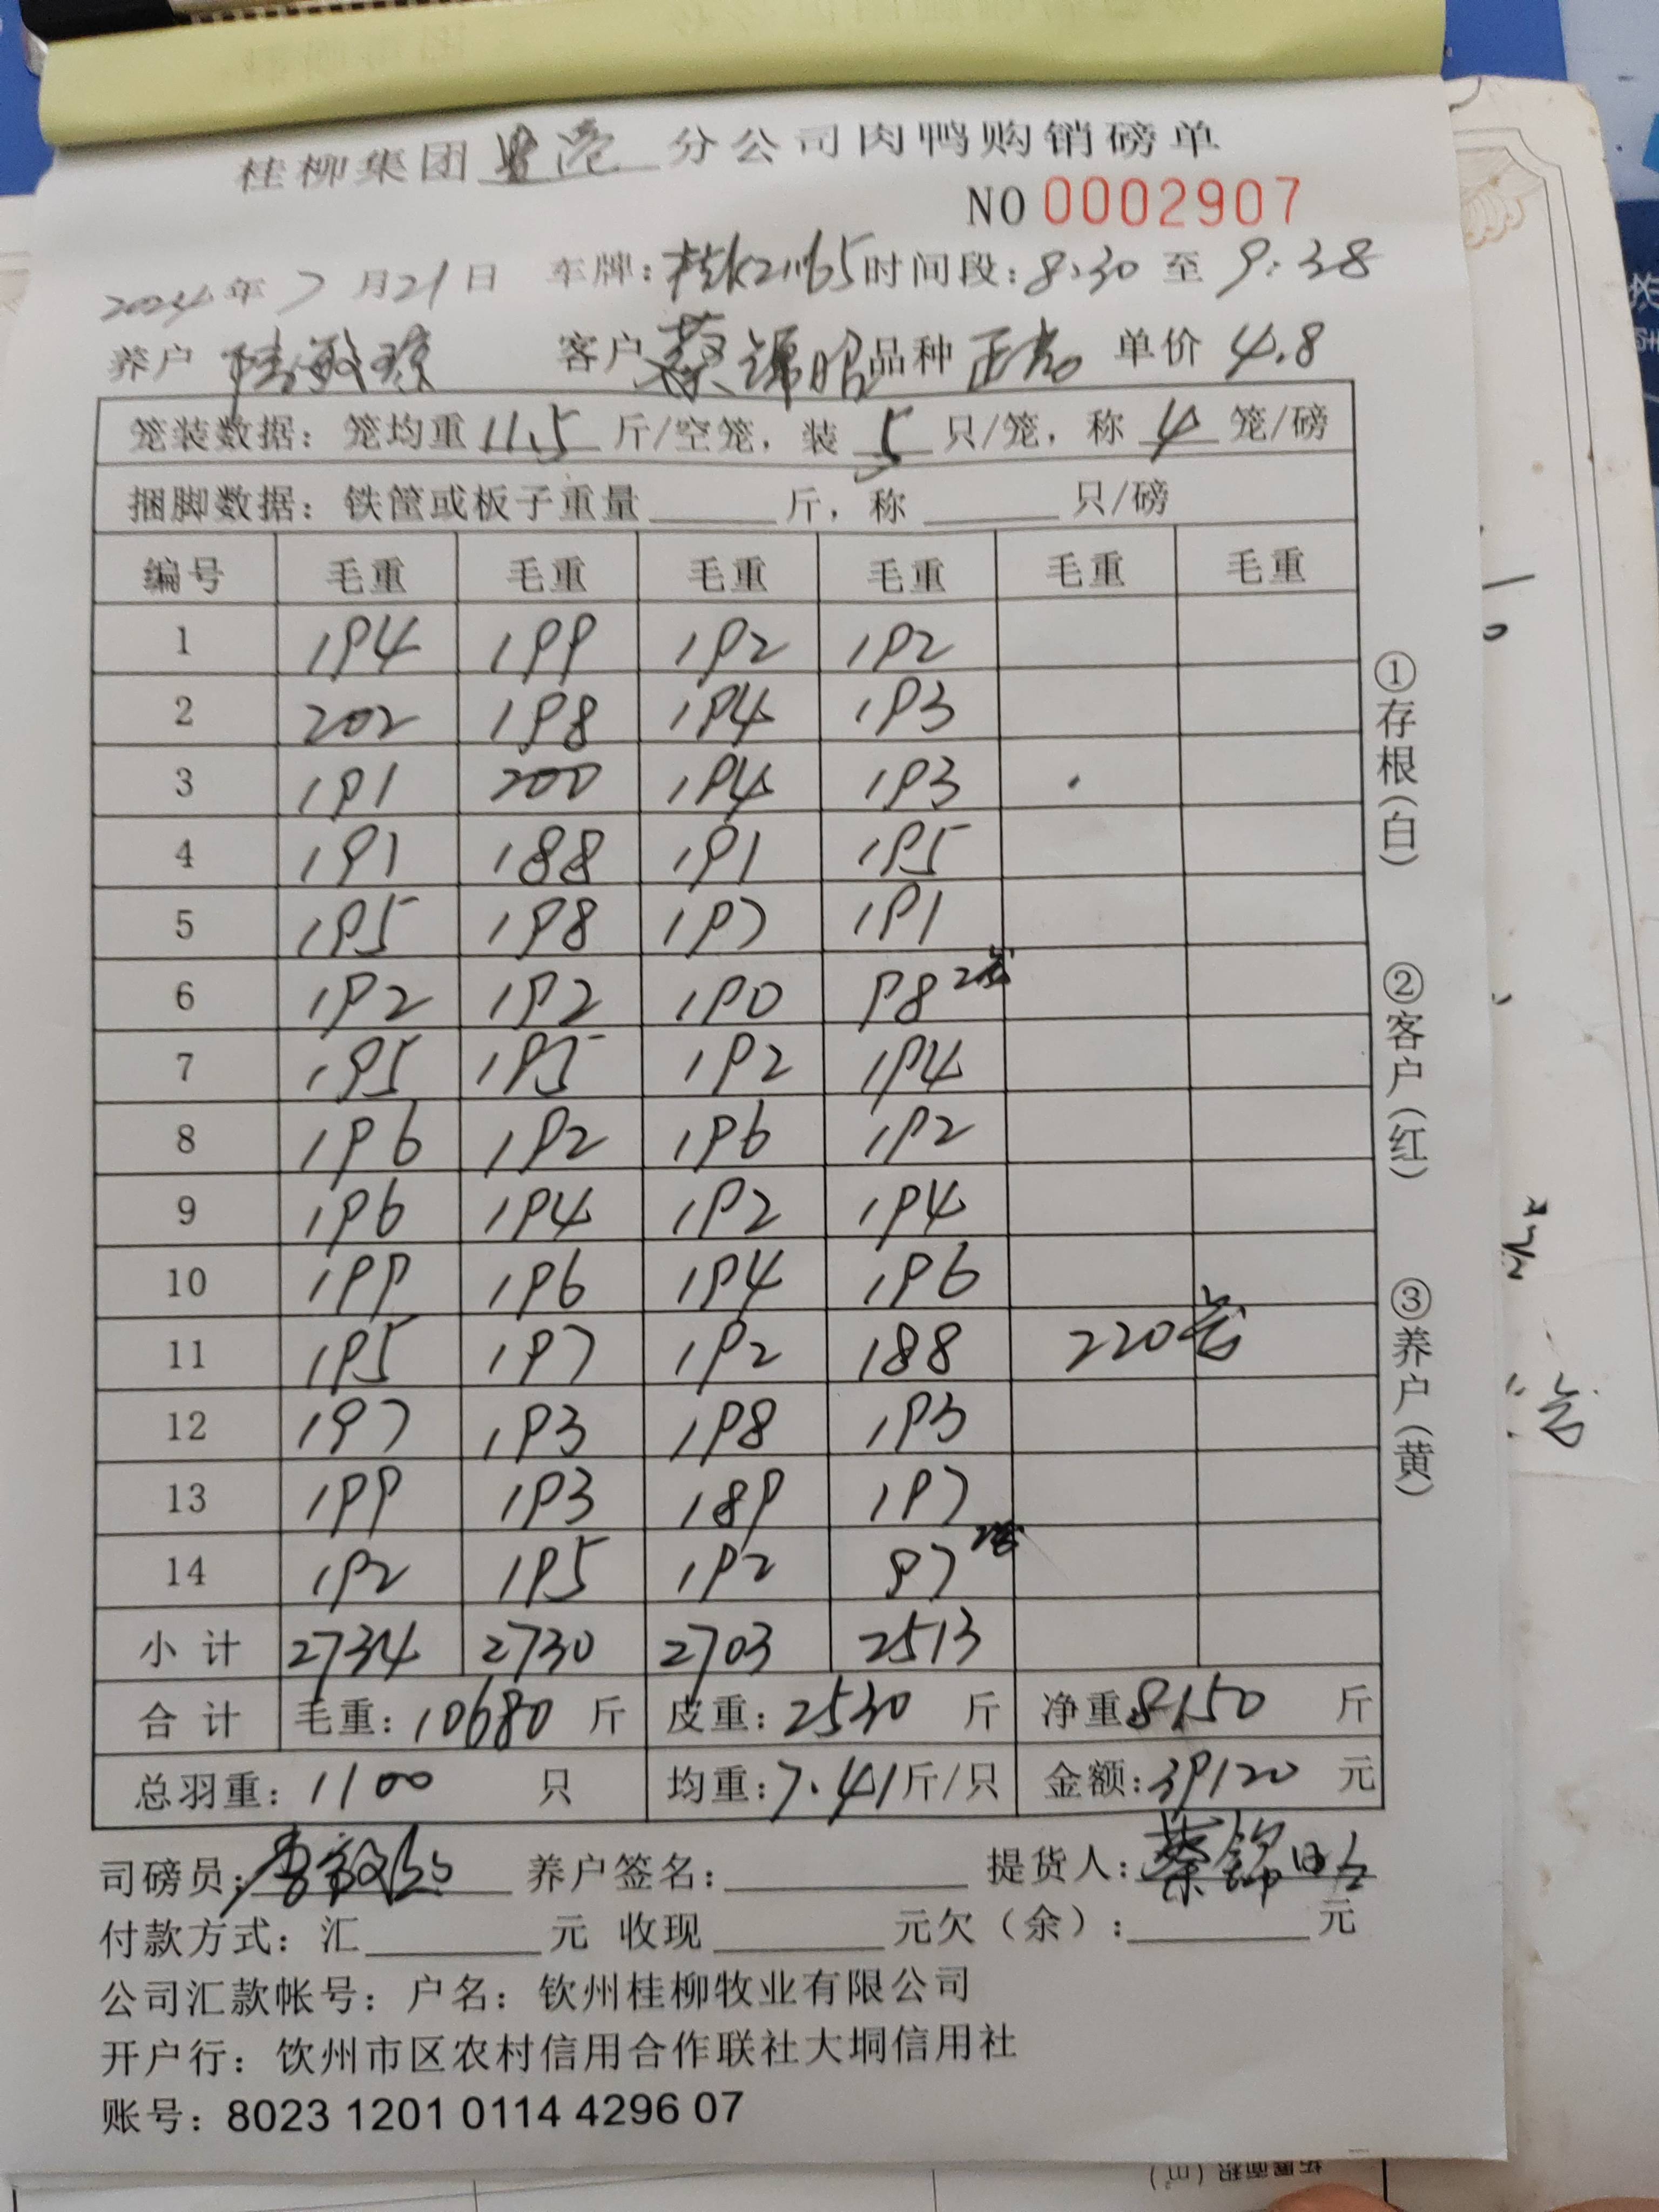 桂柳集团 分公司肉鸭购销磅单
NO 0002907
2024年7月21日 车牌: 时间段:8:30至9:38
养户 陆敏琼 客户 蔡锦昭 品种 正常 单价 4.8
笼装数据: 笼均重 11.5 斤/空笼, 装 5 只/笼, 称 4 笼/磅
捆脚数据: 铁筐或板子重量______斤, 称______只/磅
编号 毛重 毛重 毛重 毛重 毛重 毛重
1 194 199 192 192
2 202 198 194 193
3 191 200 194 193
4 191 188 191 195
5 195 198 197 191
6 192 192 190 98 2笼
7 195 195 192 194
8 196 192 196 192
9 196 194 192 194
10 199 196 194 196
11 195 197 192 188 220笼
12 197 193 198 193
13 199 193 189 197
14 192 195 192 97 2笼
小计 2734 2730 2703 2513
合计 毛重: 10680 斤 皮重: 2530 斤 净重 8150 斤
总羽重: 1100 只 均重: 7.41 斤/只 金额: 39120 元
司磅员: 养户签名: 提货人: 蔡锦昭
付款方式: 汇______元 收现______元欠(余):______元
公司汇款帐号: 户名: 钦州桂柳牧业有限公司
开户行: 钦州市区农村信用合作联社大垌信用社
账号: 8023 1201 0114 4296 07
①存根(白) ②客户(红) ③养户(黄)